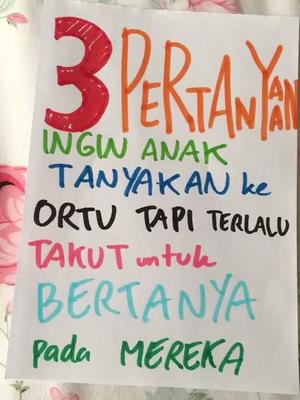 3 PERTANYAAN
INGIN ANAK
TANYAKAN ke
ORTU TAPI TERLALU
TAKUT untuk
BERTANYA
pada MEREKA